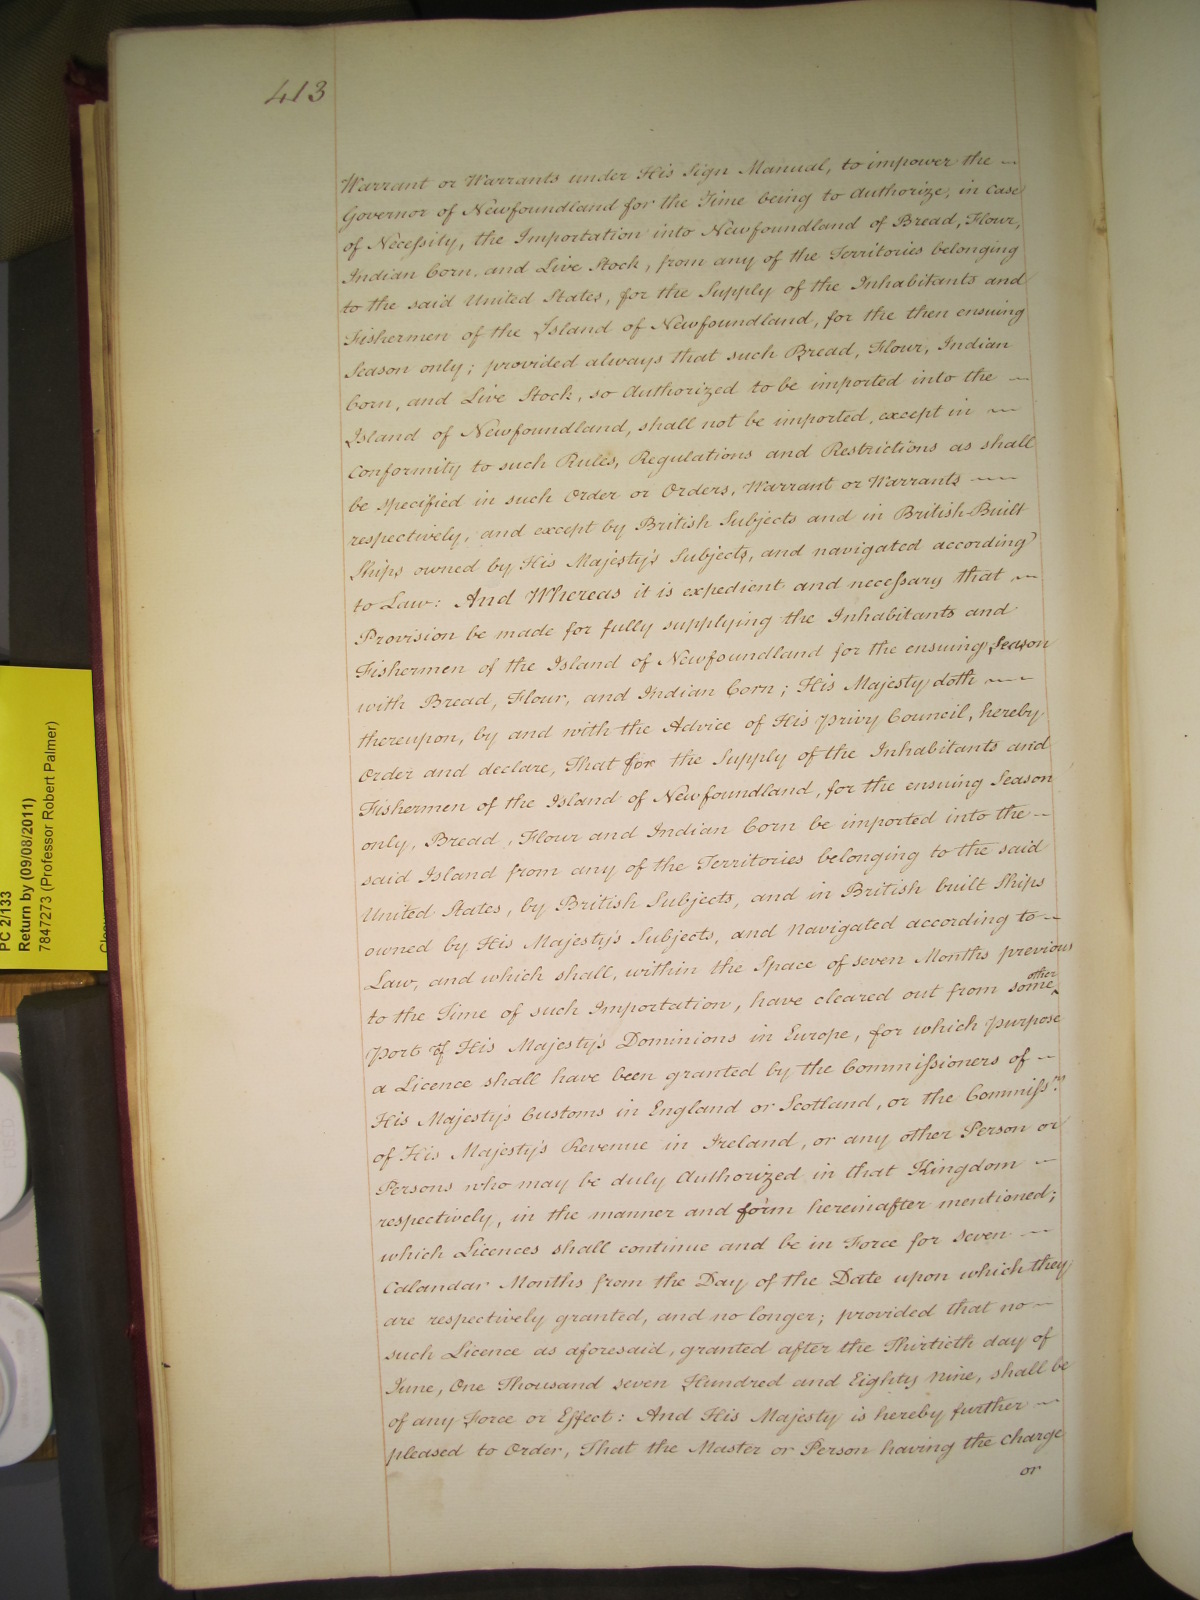 413
Warrant or Warrants under His Sign Manual, to impower the —
Governor of Newfoundland for the Time being to Authorize, in case
of Necessity, the Importation into Newfoundland of Bread, Flour,
Indian Corn, and Live Stock, from any of the Territories belonging
to the said United States, for the Supply of the Inhabitants and
Fishermen of the Island of Newfoundland, for the then ensuing
Season only; provided always that such Bread, Flour, Indian
Corn, and Live Stock, so Authorized to be imported into the —
Island of Newfoundland, shall not be imported, except in —
Conformity to such Rules, Regulations and Restrictions as shall
be specified in such Order or Orders, Warrant or Warrants —
respectively, and except by British Subjects and in British-Built
Ships owned by His Majesty's Subjects, and navigated according
to Law: And Whereas it is expedient and necessary that —
Provision be made for fully supplying the Inhabitants and
Fishermen of the Island of Newfoundland for the ensuing Season
with Bread, Flour, and Indian Corn; His Majesty doth —
thereupon, by and with the Advice of His Privy Council, hereby
Order and declare, That for the Supply of the Inhabitants and
Fishermen of the Island of Newfoundland, for the ensuing Season
only, Bread, Flour and Indian Corn be imported into the —
said Island from any of the Territories belonging to the said
United States, by British Subjects, and in British built Ships
owned by His Majesty's Subjects, and Navigated according to —
Law, and which shall, within the Space of seven Months previous
to the Time of such Importation, have cleared out from some other
Port of His Majesty's Dominions in Europe, for which purpose
a Licence shall have been granted by the Commissioners of —
His Majesty's Customs in England or Scotland, or the Commissrs.
of His Majesty's Revenue in Ireland, or any other Person or
Persons who may be duly Authorized in that Kingdom —
respectively, in the manner and form hereinafter mentioned;
which Licences shall continue and be in Force for seven —
Calandar Months from the Day of the Date upon which they
are respectively granted, and no longer; provided that no —
such Licence as aforesaid, granted after the Thirtieth day of
June, One Thousand seven Hundred and Eighty Nine, shall be
of any Force or Effect: And His Majesty is hereby further —
pleased to Order, That the Master or Person having the Charge
or
PC 2/133
Return by (09/08/2011)
7847273 (Professor Robert Palmer)